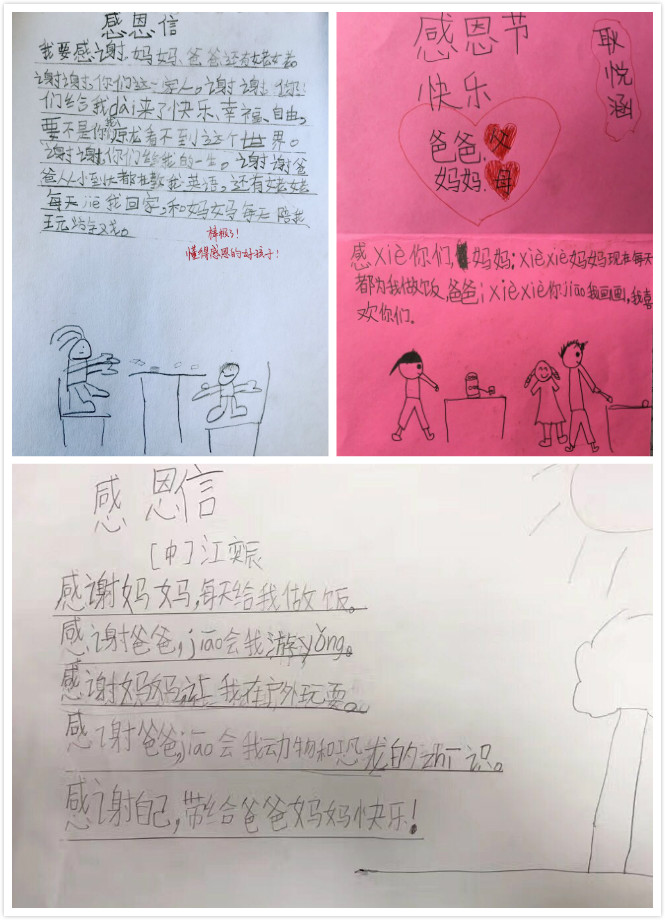 感恩信
我要感谢妈妈、爸爸还有姥姥。
谢谢你们这一家人。谢谢你
们给我dài来了快乐、幸福、自由,
要不是你 看不到这个世界。
谢谢你们给我的一生。谢谢爸
爸从小到大都在教我英语,还有姥姥
每天jiē我回家,和妈妈每天陪我
玩游戏。
棒极了!
懂得感恩的好孩子!
感恩节
快乐
耿悦涵
爸爸.父
妈妈.母
感xiè你们,妈妈;xièxiè妈妈现在每天
都为我做饭,爸爸;xièxiè你jiāo我画画,我喜
欢你们。
感恩信
[中]江奕辰
感谢妈妈,每天给我做饭。
感谢爸爸,jiāo会我游yǒng。
感谢妈妈让我在户外玩耍。
感谢爸爸,jiāo会我动物和恐龙的zhī识。
感谢自己,带给爸爸妈妈快乐!